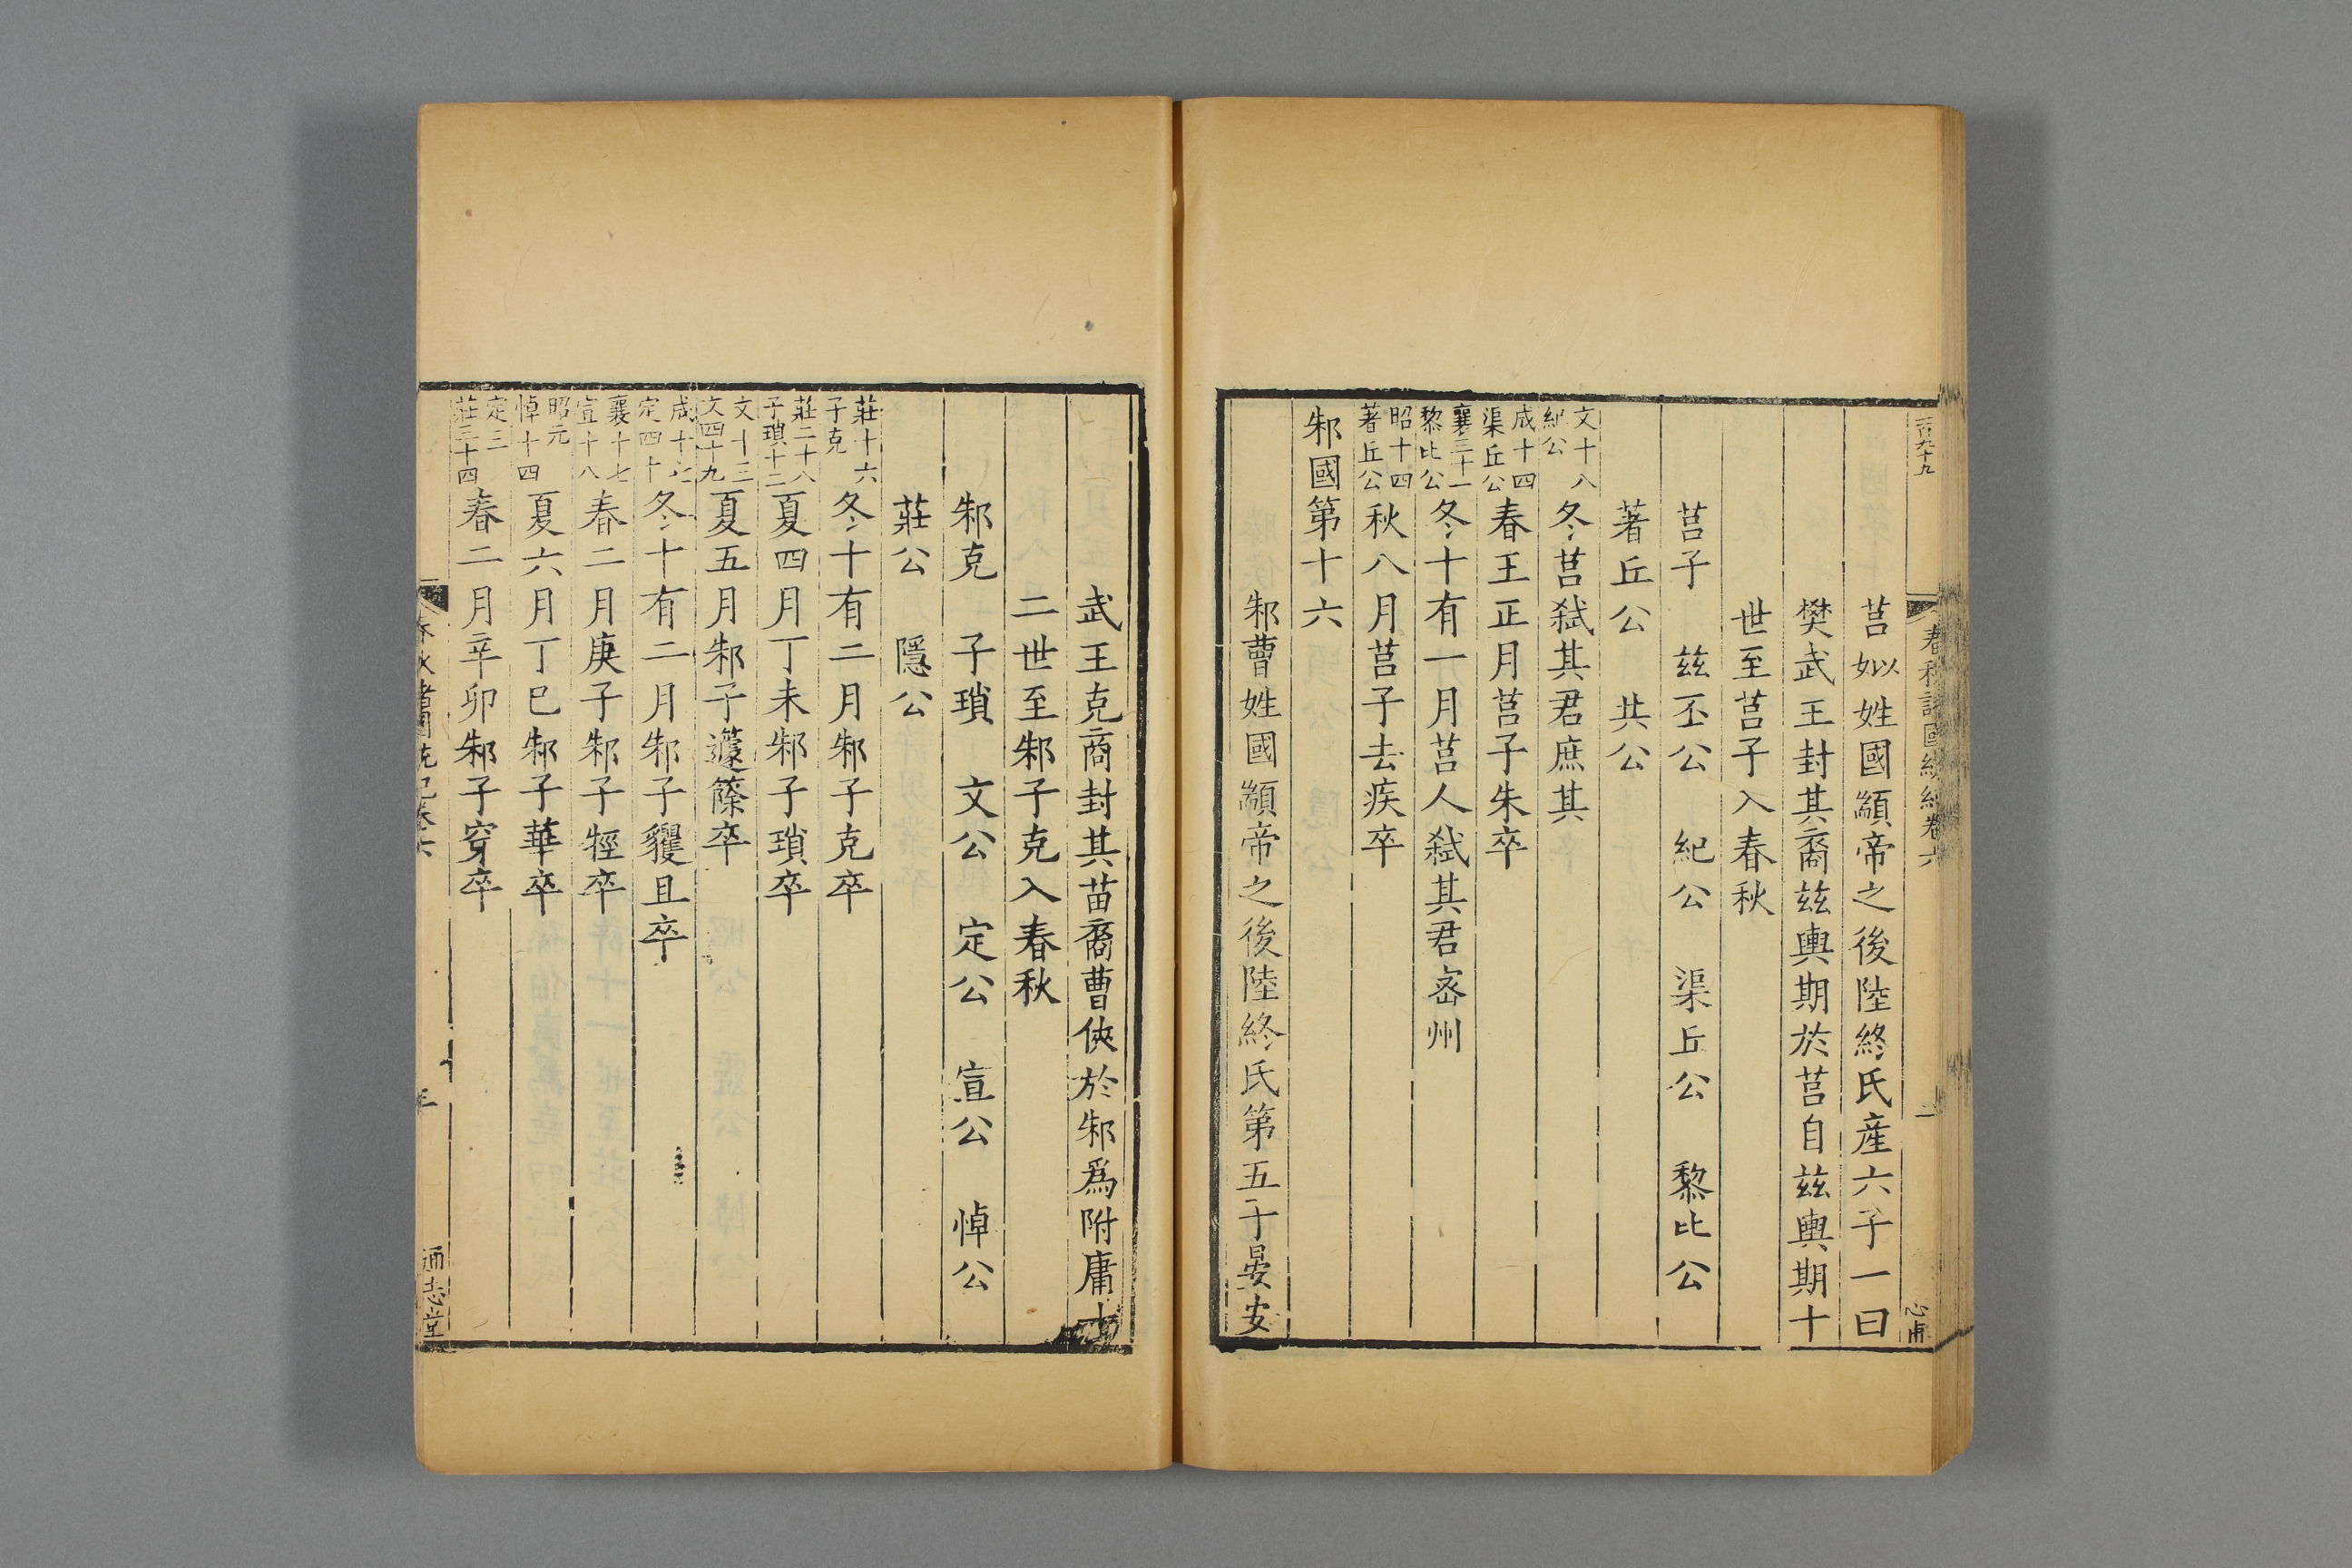 莒姒姓國顓帝之後陸終氏產六子一曰
樊武王封其裔兹輿期於莒自兹輿期十
世至莒子入春秋
莒子 兹丕公 紀公 渠丘公 黎比公
著丘公 共公
文十八
紀公
冬莒弑其君庶其
成十四
渠丘公
春王正月莒子朱卒
襄三十一
黎比公
冬十有一月莒人弑其君宻州
昭十四
著丘公
秋八月莒子去疾卒
邾國第十六
邾曹姓國顓帝之後陸終氏第五子晏安
武王克商封其苗裔曹俠於邾爲附庸十
二世至邾子克入春秋
邾克 子瑣 文公 定公 宣公 悼公
莊公 隱公
莊十六
子克
冬十有二月邾子克卒
莊二十八
子瑣十二
夏四月丁未邾子瑣卒
文十三
文四十九
夏五月邾子蘧篨卒
成十七
定四十
冬十有二月邾子貜且卒
襄十七
宣十八
春二月庚子邾子牼卒
昭元
悼十四
夏六月丁巳邾子華卒
定三
莊三十四
春二月辛卯邾子穿卒
通志堂